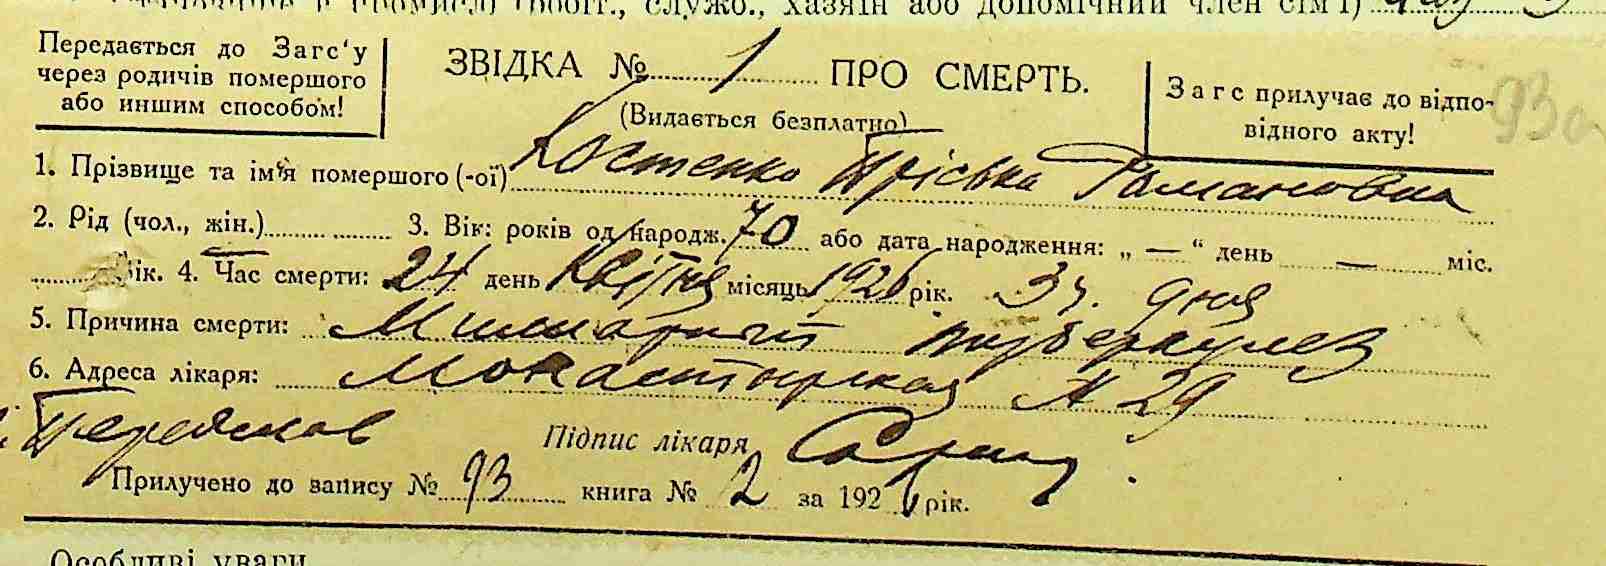 хазяїн або допомічний член сім'ї)
Передається до Загс'у
через родичів помершого
або иншим способом!
ЗВІДКА № 1 ПРО СМЕРТЬ.
(Видається безплатно)
Загс прилучає до відпо-
відного акту!
93
1. Прізвище та ім'я помершого (-ої) Костенко Пріська Романовна
2. Рід (чол., жін.) 3. Вік: років од народж. 70 або дата народження: „ — “ день — міс.
ік. 4. Час смерти: 24 день Квітня місяць 1926 рік. 3 ч. дня
5. Причина смерти: Миллиарный туберкулез
6. Адреса лікаря: Монастырская № 29
Переяслав Підпис лікаря
Прилучено до запису № 93 книга № 2 за 1926 рік.
Особливі уваги